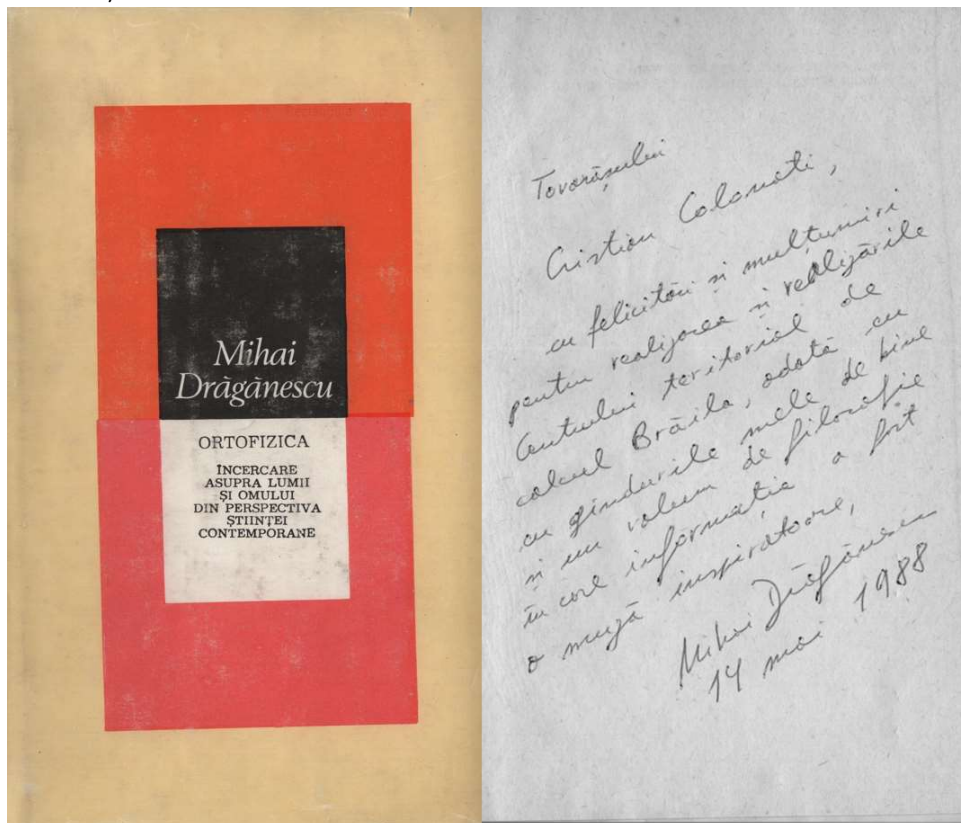 Mihai
Drăgănescu
ORTOFIZICA
ÎNCERCARE
ASUPRA LUMII
ȘI OMULUI
DIN PERSPECTIVA
ȘTIINȚEI
CONTEMPORANE
Tovarășului
Cristian Calomati,
cu felicitări și mulțumiri
pentru realizarea și realizările
Centrului teritorial de
calcul Brăila, odată cu
cu gîndurile mele de bine
și un volum de filozofie
în care informația a fost
o muză inspiratoare,
Mihai Drăgănescu
14 mai 1988